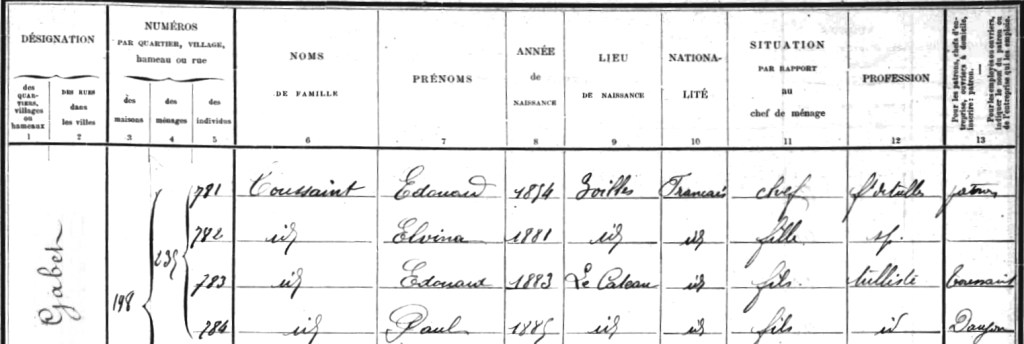 DÉSIGNATION
NUMÉROS
PAR QUARTIER, VILLAGE,
hameau ou rue
NOMS
DE FAMILLE
PRÉNOMS
ANNÉE
de
NAISSANCE
LIEU
DE NAISSANCE
NATIONA-
LITÉ
SITUATION
PAR RAPPORT
au
chef de ménage
PROFESSION
Pour les patrons, chefs d'en-
treprise, ouvriers à domicile,
inscrire : patron.
—
Pour les employés ou ouvriers,
indiquer le nom du patron ou
de l'entreprise qui les emploie.
des
QUAR-
TIERS,
villages
ou
hameaux
DES RUES
dans
les villes
des
maisons
des
ménages
des
individus
1 2 3 4 5 6 7 8 9 10 11 12 13
Gabet
198
235
781 Toussaint Edouard 1854 Français chef patron
782 id Elvina 1881 id id fille sp.
783 id Edouard 1883 Le Cateau id fils tulliste Toussaint
784 id Paul 1885 id id fils id